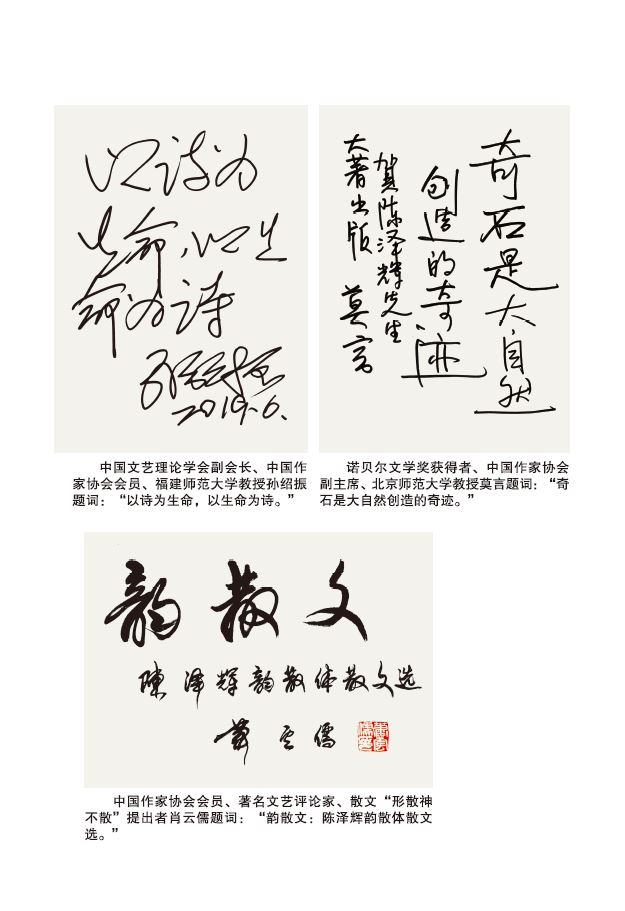 以诗为
生命，以生
命为诗
孙绍振
2019.6.
中国文艺理论学会副会长、中国作
家协会会员、福建师范大学教授孙绍振
题词：“以诗为生命，以生命为诗。”
奇石是大自然
创造的奇迹
贺陈泽辉先生
大著出版
莫言
诺贝尔文学奖获得者、中国作家协会
副主席、北京师范大学教授莫言题词：“奇
石是大自然创造的奇迹。”
韵散文
陳泽辉韵散体散文选
肖云儒
中国作家协会会员、著名文艺评论家、散文“形散神
不散”提出者肖云儒题词：“韵散文：陈泽辉韵散体散文
选。”